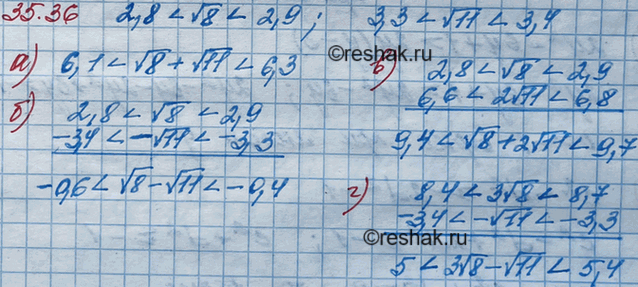 35.36 2,8 < √8 < 2,9 ; 3,3 < √11 < 3,4
а) 6,1 < √8 + √11 < 6,3
б) 2,8 < √8 < 2,9
-3,4 < -√11 < -3,3
-0,6 < √8 - √11 < -0,4
в) 2,8 < √8 < 2,9
6,6 < 2√11 < 6,8
9,4 < √8 + 2√11 < 9,7
г) 8,4 < 3√8 < 8,7
-3,4 < -√11 < -3,3
5 < 3√8 - √11 < 5,4
©reshak.ru
©reshak.ru